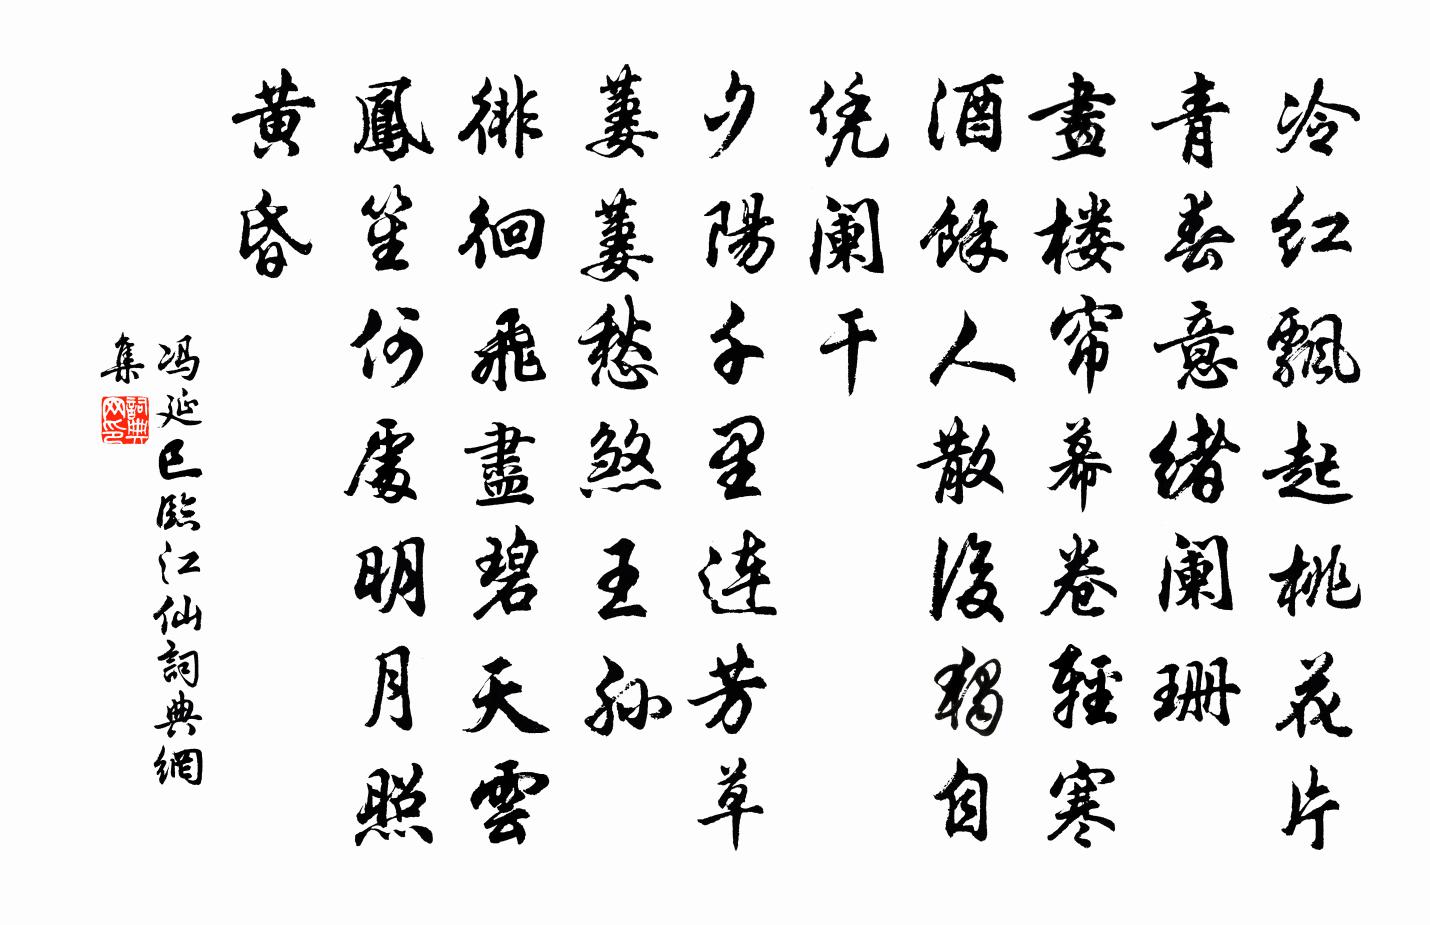 冷红飄起桃花片
青春意緒阑珊
畫楼帘幕卷輕寒
酒餘人散後獨自
凭阑干
夕陽千里连芳草
萋萋愁煞王孙
徘徊飛盡碧天雲
鳳笙何處明月照
黄昏
冯延巳臨江仙詞典網
集
詞典
网印